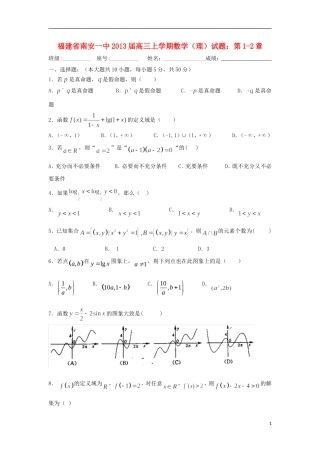 福建省南安一中2013届高三上学期数学（理）试题：第1-2章
班级: 座号: 姓名: 成绩:
一、选择题：（本大题共10小题，每小题5分，共50分）
1．若 是真命题， 是假命题，则（ ）
A．p∧q是真命题 B．p∨q是假命题 C．﹁p是真命题 D．﹁q是真命题
2．函数 f(x)=1/(1-x)+lg(1+x) 的定义域是（ ）
A．(-∞，1) B．(1，+∞) C．(-1,1)∪(1，+∞) D．(-∞，+∞)
3．若 a∈R，则“a=2”是“(a-1)(a-2)=0”的( )
A.充分而不必要条件 B．必要而不充分条件 C．充要条件 D．既不充分又不必要条件
4．如果 ，那么（ ）
A．y<x<1 B．x<y<1 C．1<x<y D．1<y<x
5．已知集合 ，则 A∩B 的元素个数为( )
A．0 B．1 C．2 D．3
6．若点(a,b)在 y=lgx 图象上，a≠1，则下列点也在此图象上的是（ ）
A．(1/a,b) B．(10a,1-b) C．(10/a,b+1) D．(a²,2b)
7．函数 y=x/2-2sinx 的图象大致是( )
(A) (B) (C) (D)
8．f(x)的定义域为R，f(-1)=2，对任意x∈R， ，则 f(x)-2x-4>0 的解
集为（ ）
1